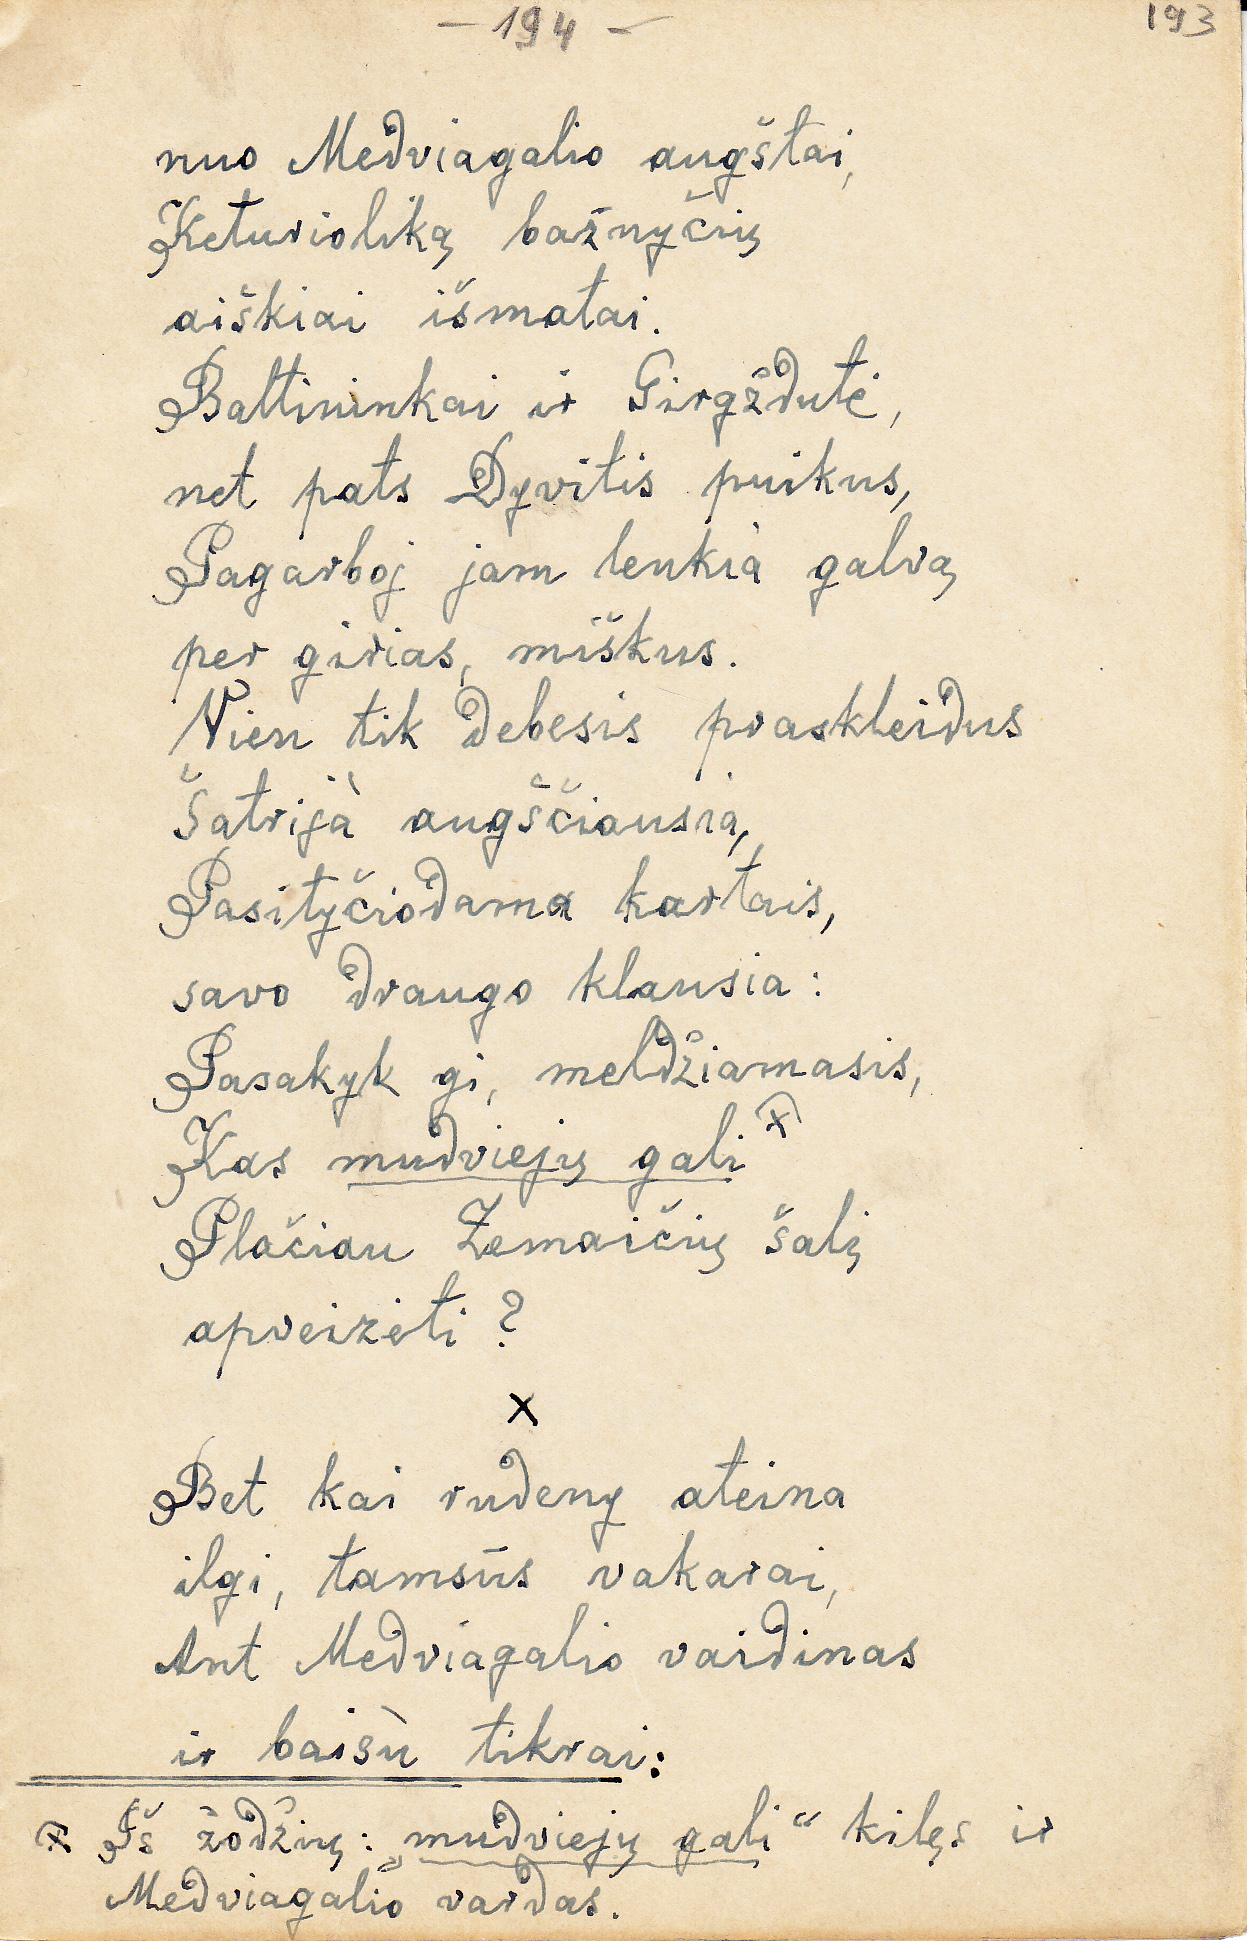 - 194 -
193
nuo Medviagalio augštai,
Keturioliką bažnyčių
aiškiai išmatai.
Baltininkai ir Girgždutė,
net pats Dyvitis puikus,
Pagarboj jam lenkia galvą
per girias, miškus.
Vien tik debesis praskleidus
Šatrijà augščiausia,
Pasityčiodama kartais,
savo draugo klausia:
Pasakyk gi, meldžiamasis,
Kas mudviejų gali x)
Plačiau Žemaičių šalį
apveizėti?
x
Bet kai rudeny ateina
ilgi, tamsūs vakarai,
Ant Medviagalio vaidinas
ir baisù tikrai:
x Iš žodžių: „mudviejų gali“ kilęs ir
Medviagalio vardas.